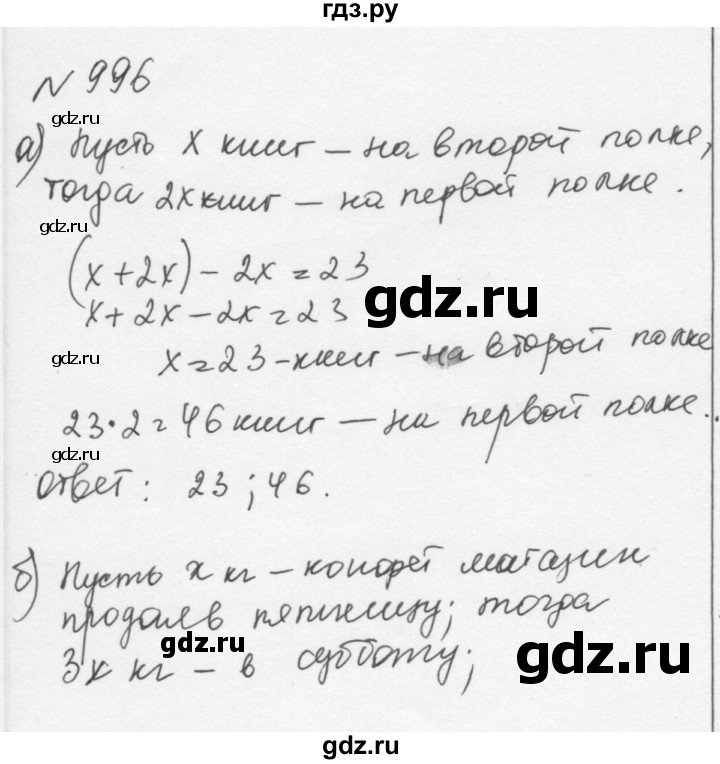 гдз.ру
N 996
gdz.ru
а) Пусть x книг – на второй полке,
тогда 2x книг – на первой полке.
gdz.ru
(x + 2x) – 2x = 23
gdz.ru
x + 2x – 2x = 23
gdz.ru
x = 23 – книг – на второй полке
23 · 2 = 46 книг – на первой полке.
gdz.ru
ответ: 23; 46.
б) Пусть x кг – конфет магазин
продал в пятницу; тогда
gdz.ru
gdz.ru
3x кг – в субботу;
gdz.ru